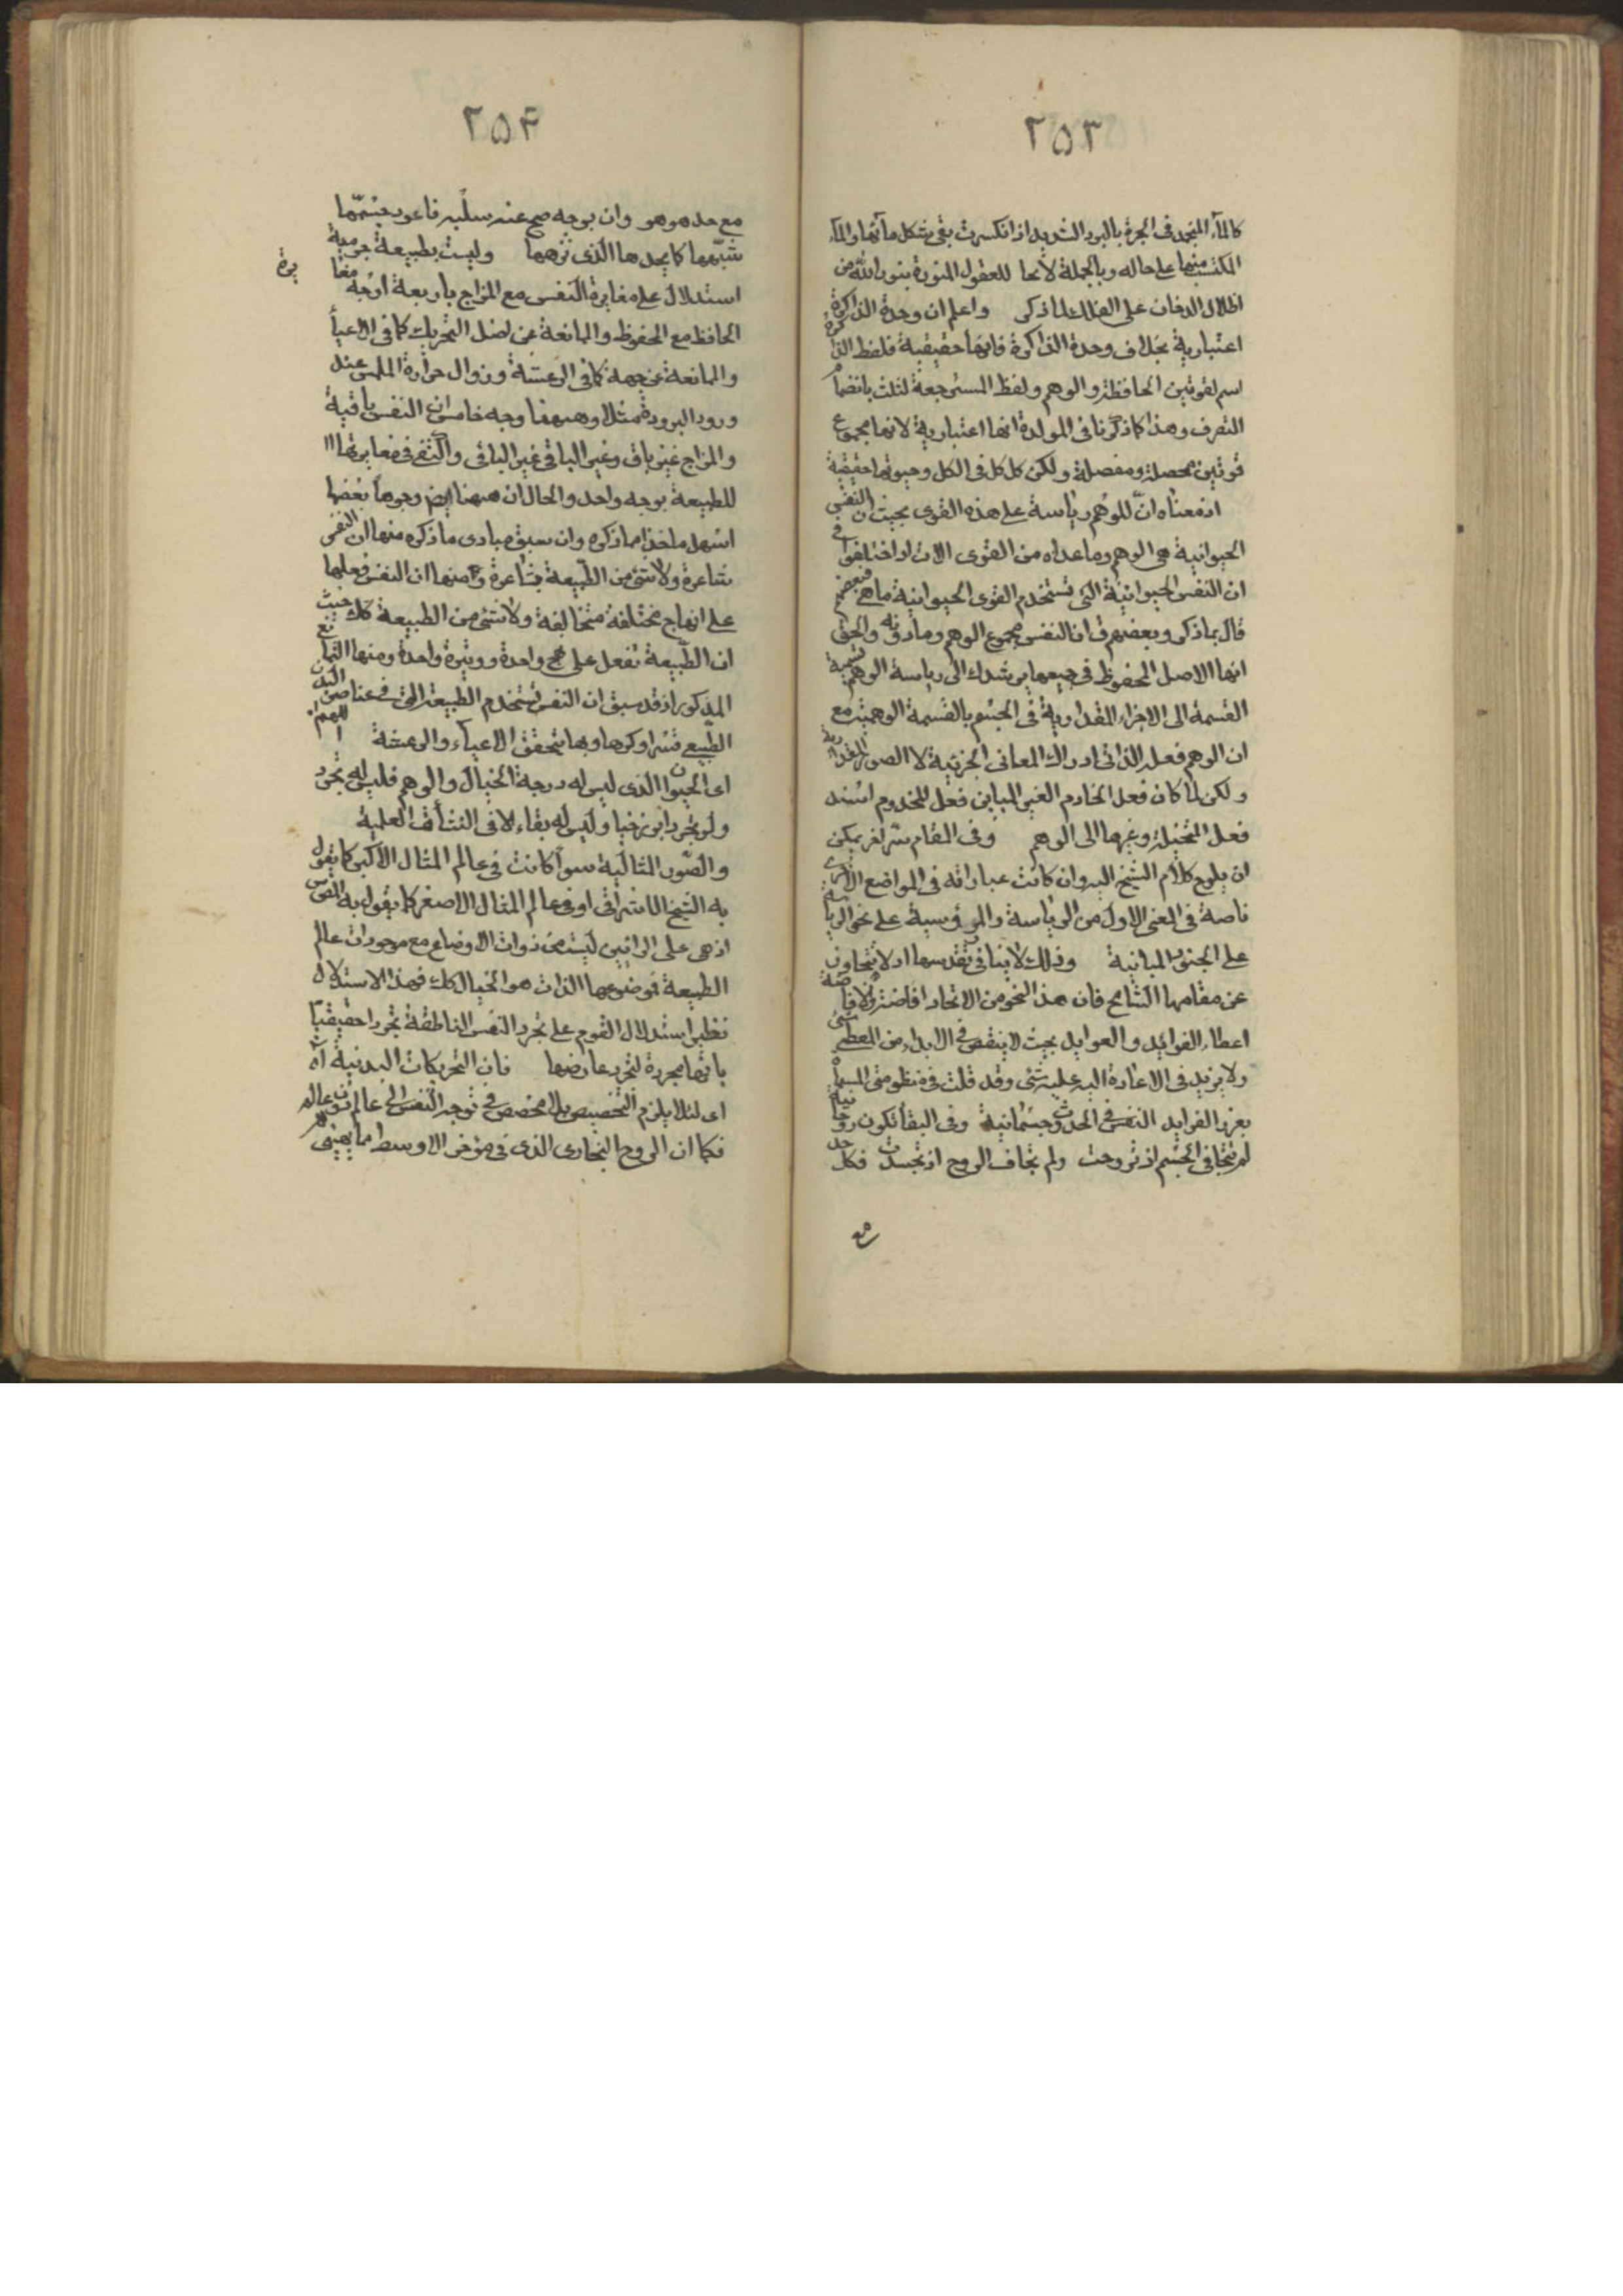 ٢٥٣
كالماء المتجمد فى الجرة بالبرد الشديد اذا انكسرت بقى بشكل مائها والماء
المكتسب منها على حاله وبالجملة لايحا للعقول المنورة بنور الله من
اظلال الدخان على الفلك لما ذكر واعلم ان وحدة الذاكرة
اعتبارية بخلاف وحدة الذاكرة فانها حقيقية فلفظ الذاكرة
اسم لقوتين الحافظة والوهم ولفظ المسترجعة لثلث بانضمام
التصرف وهذا كما ذكرنا فى المولدة انها اعتبارية لانها مجموع
قوتين محصلة ومفصلة ولكن كل كل فى الكل وحيوتها حقيقية
اذ معناه انّ للوهم رياسة على هذه القوى بحيث ان النفس
الحيوانية هى الوهم وما عداه من القوى الات اذ اختلفوا فى
ان النفس الحيوانية التى تستخدم القوى الحيوانية ما هى فبعضهم
قال بما ذكر وبعضهم ان النفس مجموع الوهم وما دونه والحق
انها الاصل المحفوظ فى جميعها يرشدك الى رياسة الوهم تسمية
القسمة الى الاجزاء المقدارية فى الجسم بالقسمة الوهمية مع
ان الوهم فعله الذاتى ادراك المعانى الجزئية لا الصور المقدارية
ولكن لما كان فعل الخادم الغير المباين فعل للمخدوم اسند
فعل المتخيلة وغيرها الى الوهم وفى المقام سر اخر يمكن
ان يلوح كلام الشيخ اليه وان كانت عباراته فى المواضع الاخرى
ناصة فى المعنى الاول من الرياسة والمرؤسية على نحو الرياسة
على الجنود المباينة وذلك لا ينافى تقدسها اذ لا تتجاوز
عن مقامها الشامخ فان هذا النحو من الاتحاد افاضة والافاضة
اعطاء الفوائد والعوايد بحيث لا ينقص فى الابداء من المعطى شئ
ولا يزيد فى الاعادة اليه عليه شئ وقد قلت فى منظومتى المسماة
بغرر الفرايد النفس فى الحدوث جسمانية وفى البقا تكون روحانية
لم تتجافى الجسم اذ تروحت ولم تجاف الروح اذ تجسدت فكل حد
مع
٢٥٤
مع حد هو هو وان بوجه صح عنه سلبه فاعوجسمها
شبّهها كما يحدها الذى نزهها وليست بطبيعة جرمية
استدلال على مغايرة النفس مع المزاج باربعة اوجه مغايرة
الحافظ مع المحفوظ والممانعة عن اصل التحريك كما فى الاعياء
والممانعة عن جهة كما فى الرعشة وزوال حرارة الملمس عند
ورود البرودة مثلا وههنا وجه خامس ان النفس باقية
والمزاج غير باق وغير الباقى غير الباقى واكتفى فى مغايرتها
للطبيعة بوجه واحد والحال ان ههنا ايض وجوها بعضها
اسهل ماخذا مما ذكره وان سبق مبادى ما ذكره منها ان النفس
شاعرة ولا شئ من الطبيعة بشاعرة ومنها ان النفس فعلها
على انهاج مختلفة متخالفة ولا شئ من الطبيعة كك حيث
ان الطبيعة تفعل على نهج واحدة ووتيرة واحدة ومنها التمانع
المذكور اذ قد سبق ان النفس تستخدم الطبيعة التى فى عناصر البدن
الطبيعى قسرا وكرها وبها تتحقق الاعياء والرعشة اللهم
اى الحيوان الذى ليس له درجة الخيال والوهم فليس له تجرد
ولو تجردا برزخيا وليس له بقاء الا فى النشأة العلمية
والصور المثالية سواء كانت فى عالم المثال الاكبر كما يقول
به الشيخ الاشراقى او فى عالم المثال الاصغر كما يقول به المص
اذ هى على الرائيين ليست من ذوات الاوضاع مع موجودات عالم
الطبيعة فموضوعها الذات هو الخيال كك فهذا الاستدلال
نظير استدلال القوم على تجرد النفس الناطقة تجردا حقيقيا
بانها مجردة لتجرد عارضها فان التحريكات البدنية اه
اى لئلا يلزم التخصيص بلا مخصص فى توجه النفس الى عالم دون عالم
فكما ان الروح البخارى الذى فى مؤخر الاوسط مما يهيئ